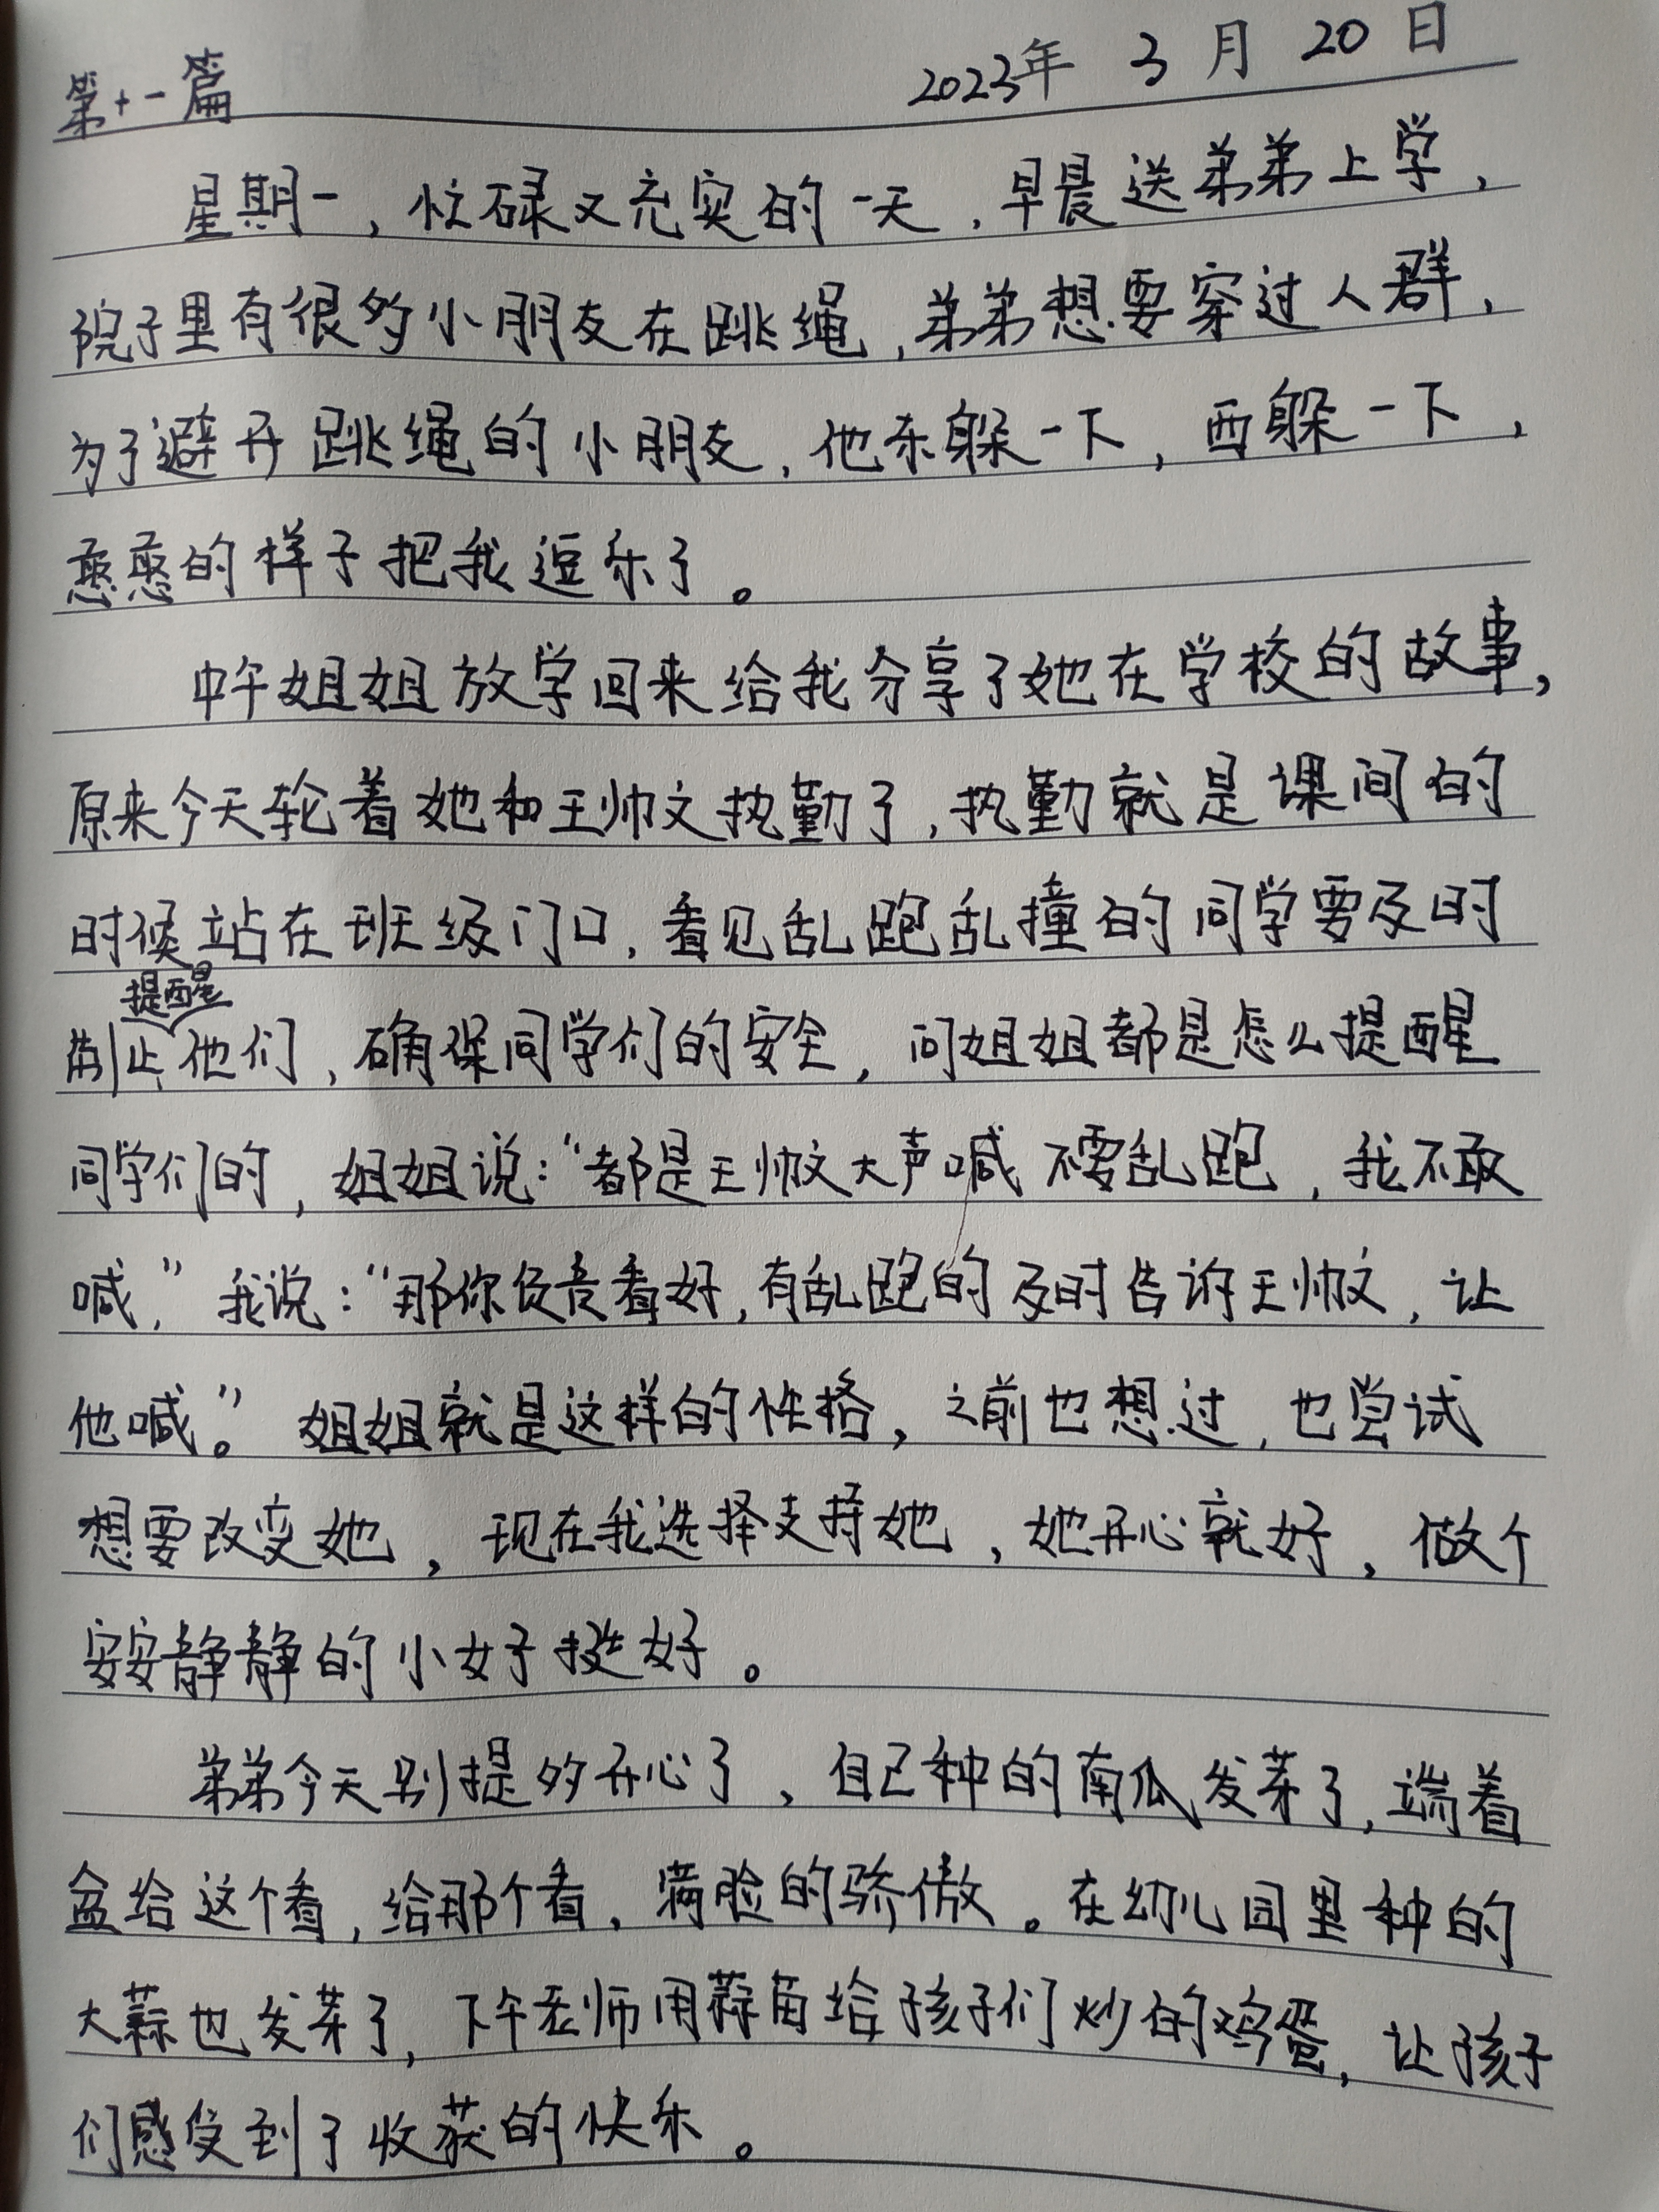 第十一篇 2023年 3 月 20 日
星期一，忙碌又充实的一天，早晨送弟弟上学，
院子里有很多小朋友在跳绳，弟弟想要穿过人群，
为了避开跳绳的小朋友，他东躲一下，西躲一下，
憨憨的样子把我逗乐了。
中午姐姐放学回来给我分享了她在学校的故事，
原来今天轮着她和王帅文执勤了，执勤就是课间的
时候站在班级门口，看见乱跑乱撞的同学要及时
提醒
制止他们，确保同学们的安全，问姐姐都是怎么提醒
同学们的，姐姐说：“都是王帅文大声喊不要乱跑，我不敢
喊，”我说：“那你负责看好，有乱跑的及时告诉王帅文，让
他喊。”姐姐就是这样的性格，之前也想过，也尝试
想要改变她，现在我选择支持她，她开心就好，做个
安安静静的小女子挺好。
弟弟今天别提多开心了，自己种的南瓜发芽了，端着
盆给这个看，给那个看，满脸的骄傲。在幼儿园里种的
大蒜也发芽了，下午老师用蒜苗给孩子们炒的鸡蛋，让孩子
们感受到了收获的快乐。